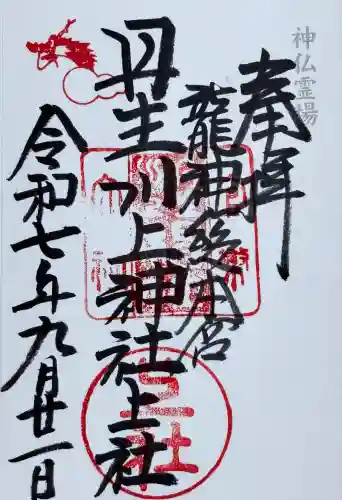 神仏霊場
奉拝
龍神総本宮
丹生川上神社上社
令和七年九月廿一日